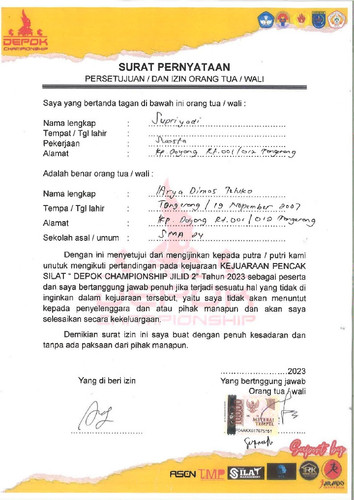 DEPOK
CHAMPIONSHIP
SURAT PERNYATAAN
PERSETUJUAN / DAN IZIN ORANG TUA / WALI
Saya yang bertanda tagan di bawah ini orang tua / wali :
Nama lengkap : Supriyadi
Tempat / Tgl lahir :
Pekerjaan : Swasta
Alamat : Kp Doyong Rt.001/012 Tangerang
Adalah benar orang tua / wali :
Nama lengkap : Arya Dimas
Tempa / Tgl lahir : Tangerang / 19 Nopember 2007
Alamat : Kp Doyong Rt.001/012 Tangerang
Sekolah asal / umum : SMA 24
Dengan ini menyetujui dan mengijinkan kepada putra / putri kami
unutuk mengikuti pertandingan pada kejuaraan KEJUARAAN PENCAK
SILAT " DEPOK CHAMPIONSHIP JILID 2" Tahun 2023 sebagai peserta
dan saya bertanggung jawab penuh jika terjadi sesuatu hal yang tidak di
inginkan dalam kejuaraan tersebut, yaitu saya tidak akan menuntut
kepada penyelenggara dan atau pihak manapun dan akan saya
selesaikan secara kekeluargaan.
Demikian surat izin ini saya buat dengan penuh kesadaran dan
tanpa ada paksaan dari pihak manapun.
2023
Yang di beri izin
Yang bertnggung jawab
Orang tua / wali
METERAI
TEMPEL
Suport by
ASON TMP SILAT